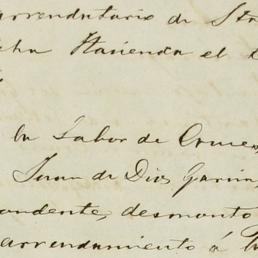 arrendatario de
cha Hacienda el
la Labor de
Juan de Dios Garcia,
pondente, desmonto
arrendamiento á